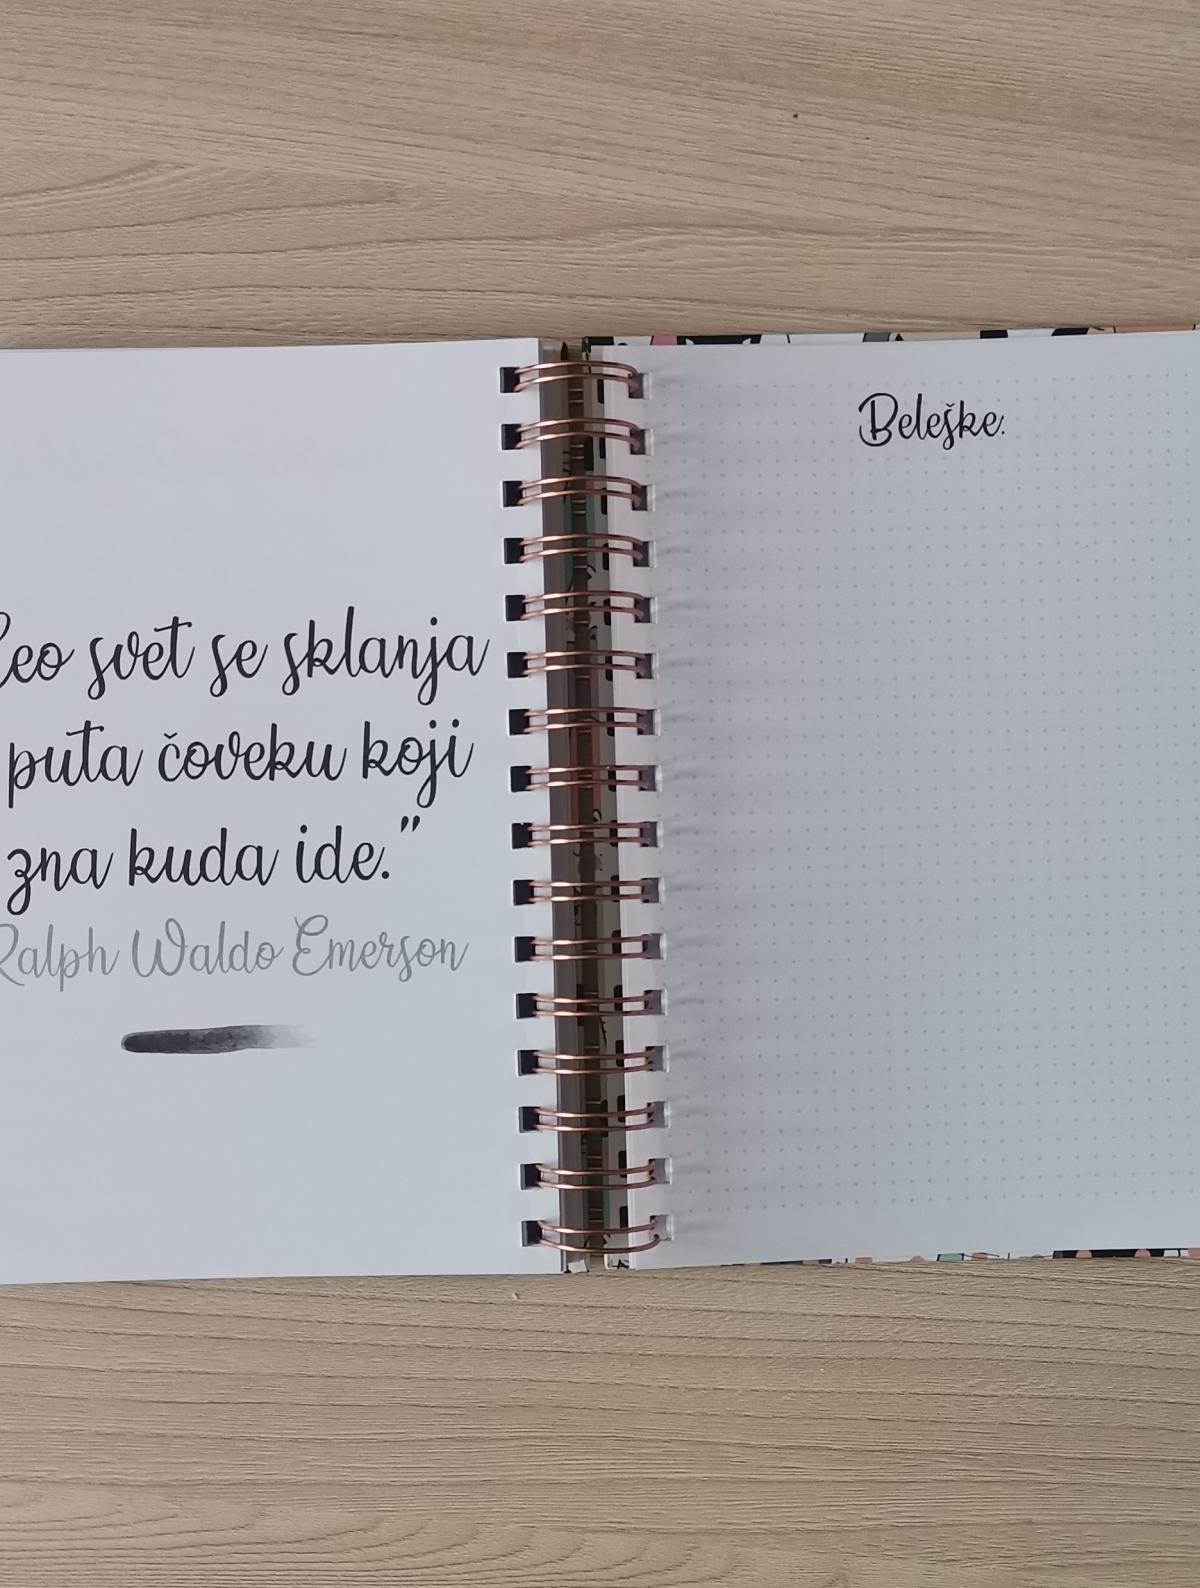 Ceo svet se sklanja
puta čoveku koji
zna kuda ide."
Ralph Waldo Emerson
Beleške: